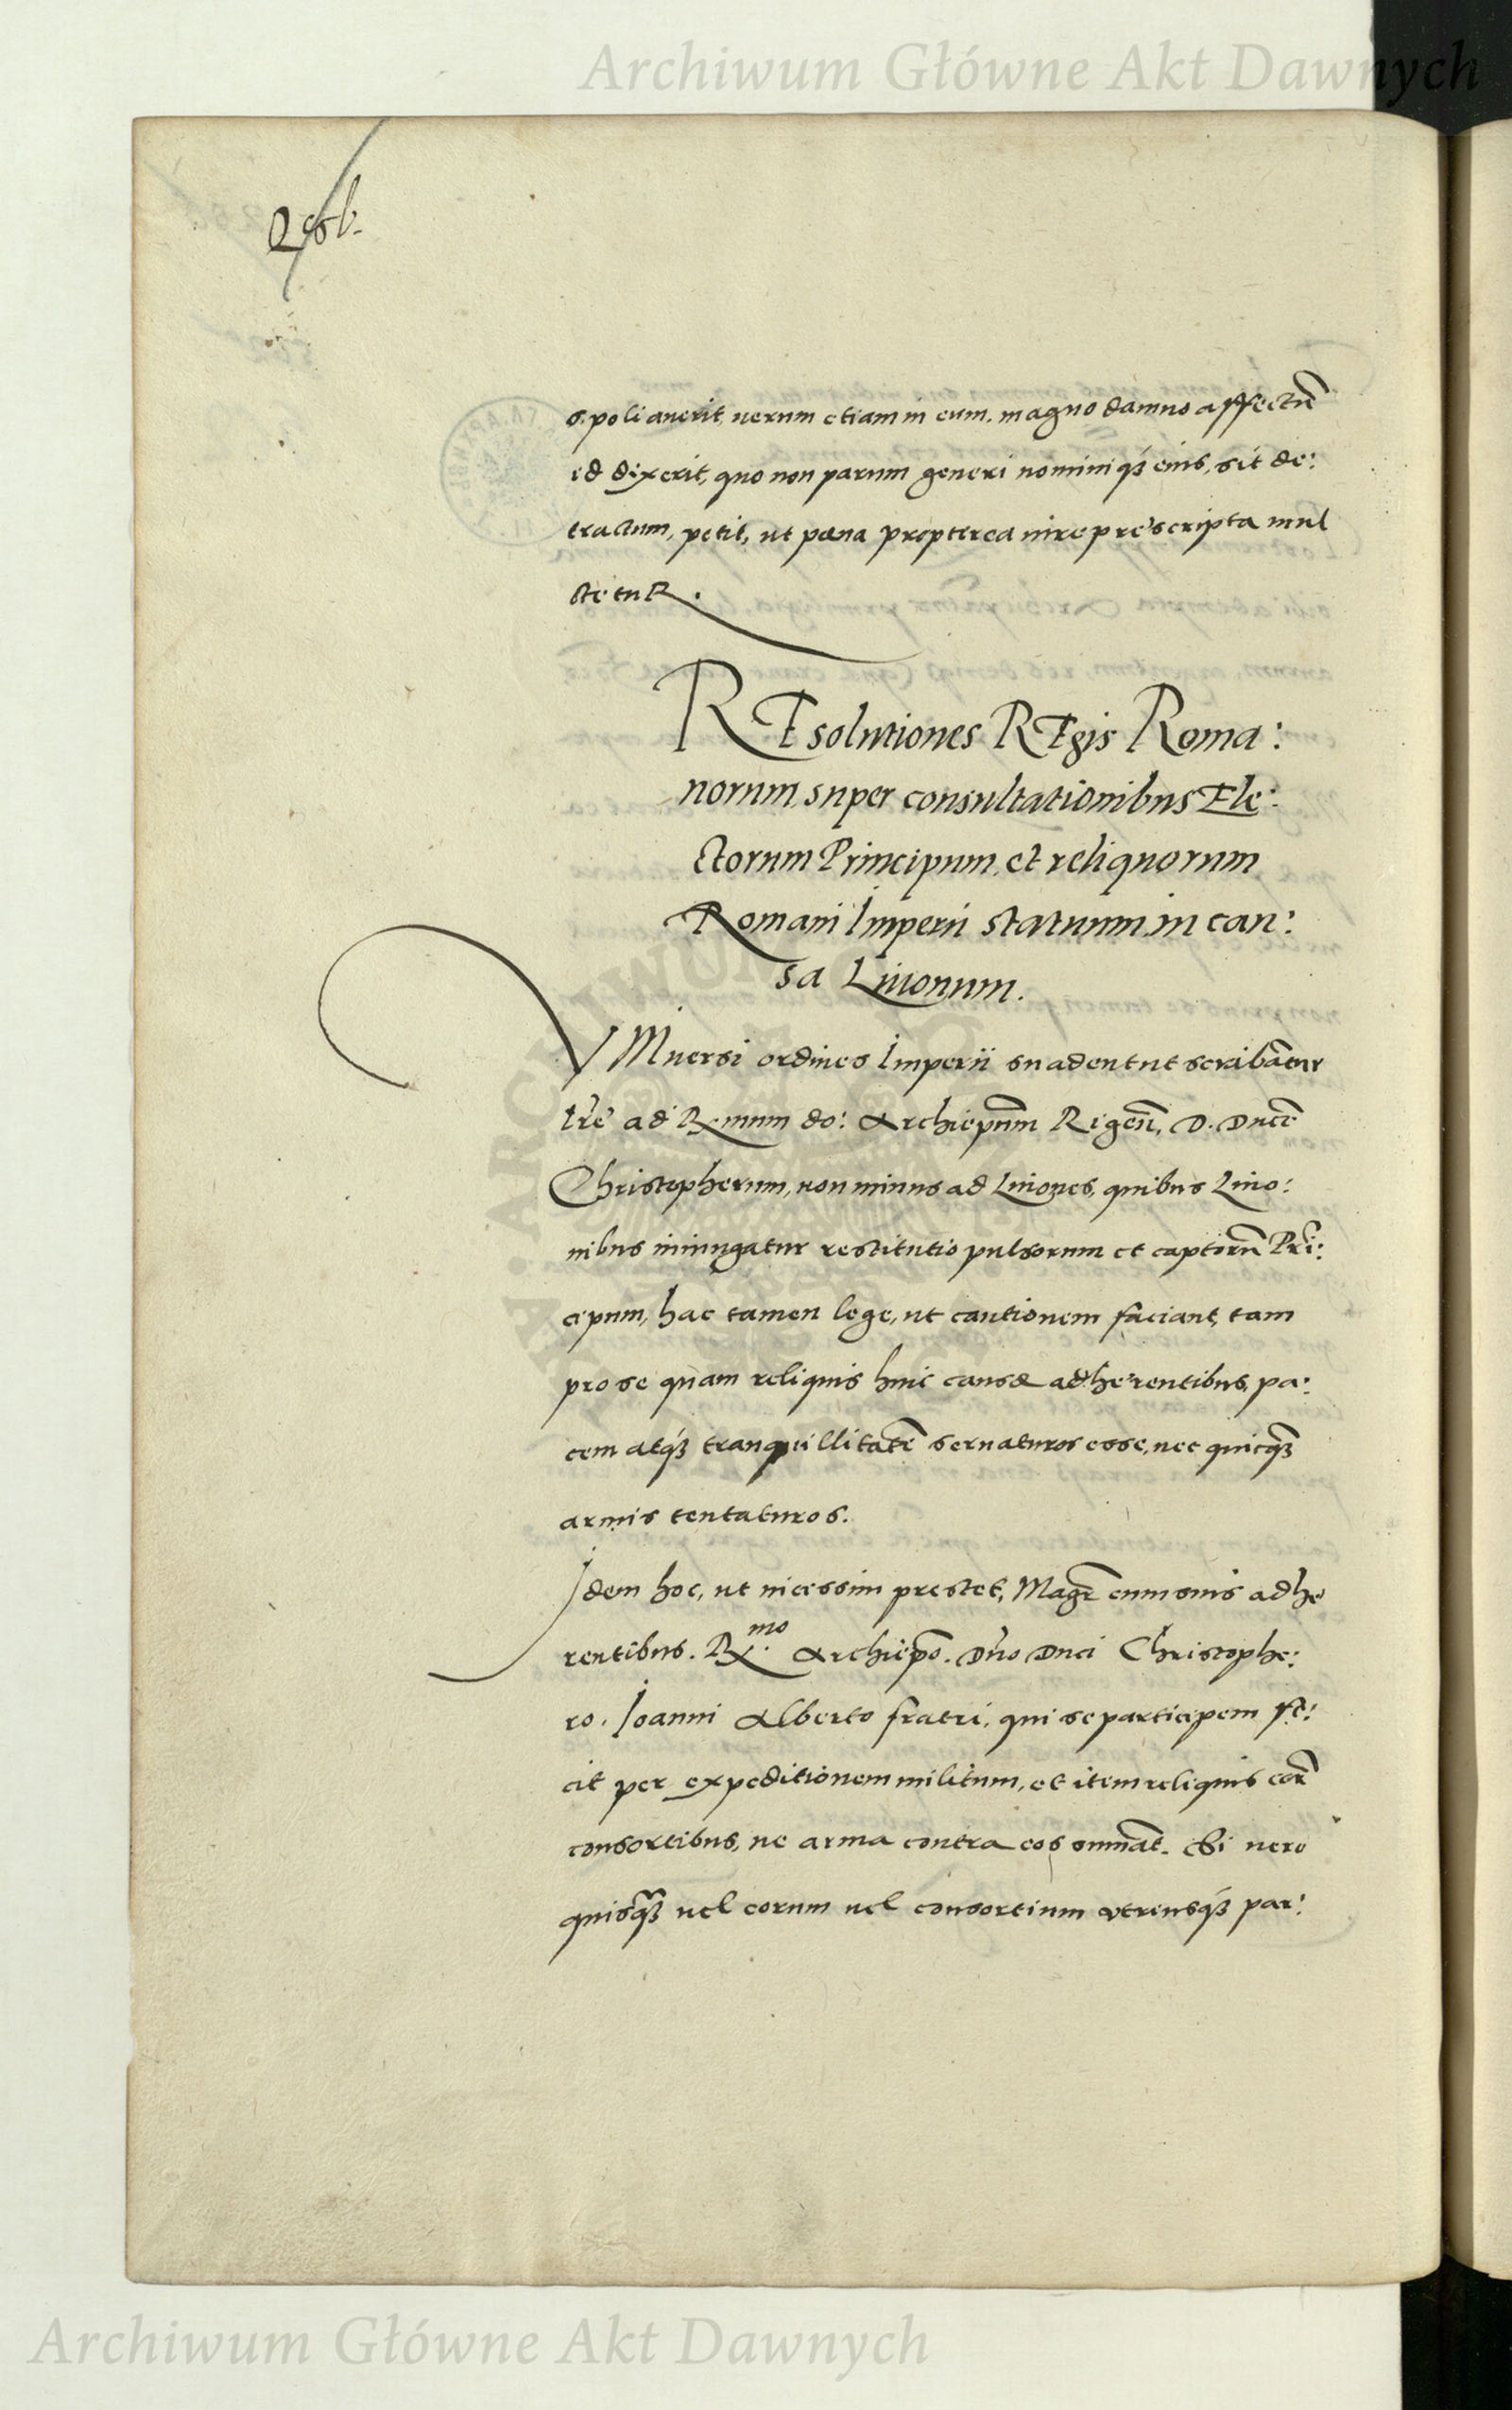 Archiwum Główne Akt Dawnych
spoliauerit, uerum etiam in eum, magno damno affectũ
id dixerit, quo non parum generi nominiq́ꝫ eius, sit de:
tractum, petit, ut pæna propterea iure prescripta mul
ctetuR.
REsolutiones REgis Roma:
norum super consultationibus Ele:
ctorum Principum, et reliquorum
Romani Imperii statuum in cau:
sa Liuonum.
VNiuersi ordines Imperii suadent ut scribãtur
tr̃e ad R.mum do: Archiepũm Rigeñ, D. Ducẽ
Christopherum, non minus ad Liuones, quibus Liuo:
nibus iniungatur restitutio pulsorum et captorũ Prĩ:
cipum, hac tamen lege, ut cautionem faciant, tam
pro se quam reliquis huic causæ adherentibus, pa:
cem atq́ꝫ tranquillitatẽ seruaturos esse, nec quicq̃ꝫ
armis tentaturos.
Idem hoc, ut uicessim prestet, Magr̃ cum suis adhe
rentibus. R.mo Archiepõ. Dño Duci Christophe:
ro. Ioanni Alberto fratri, qui se participem fe:
cit per expeditionem militum, et item reliquis eor̃
consortibus, ne arma contra eos sumãt. Si uero
quisq̃ꝫ uel eorum uel consortium utreusq́ꝫ par:
Archiwum Główne Akt Dawnych